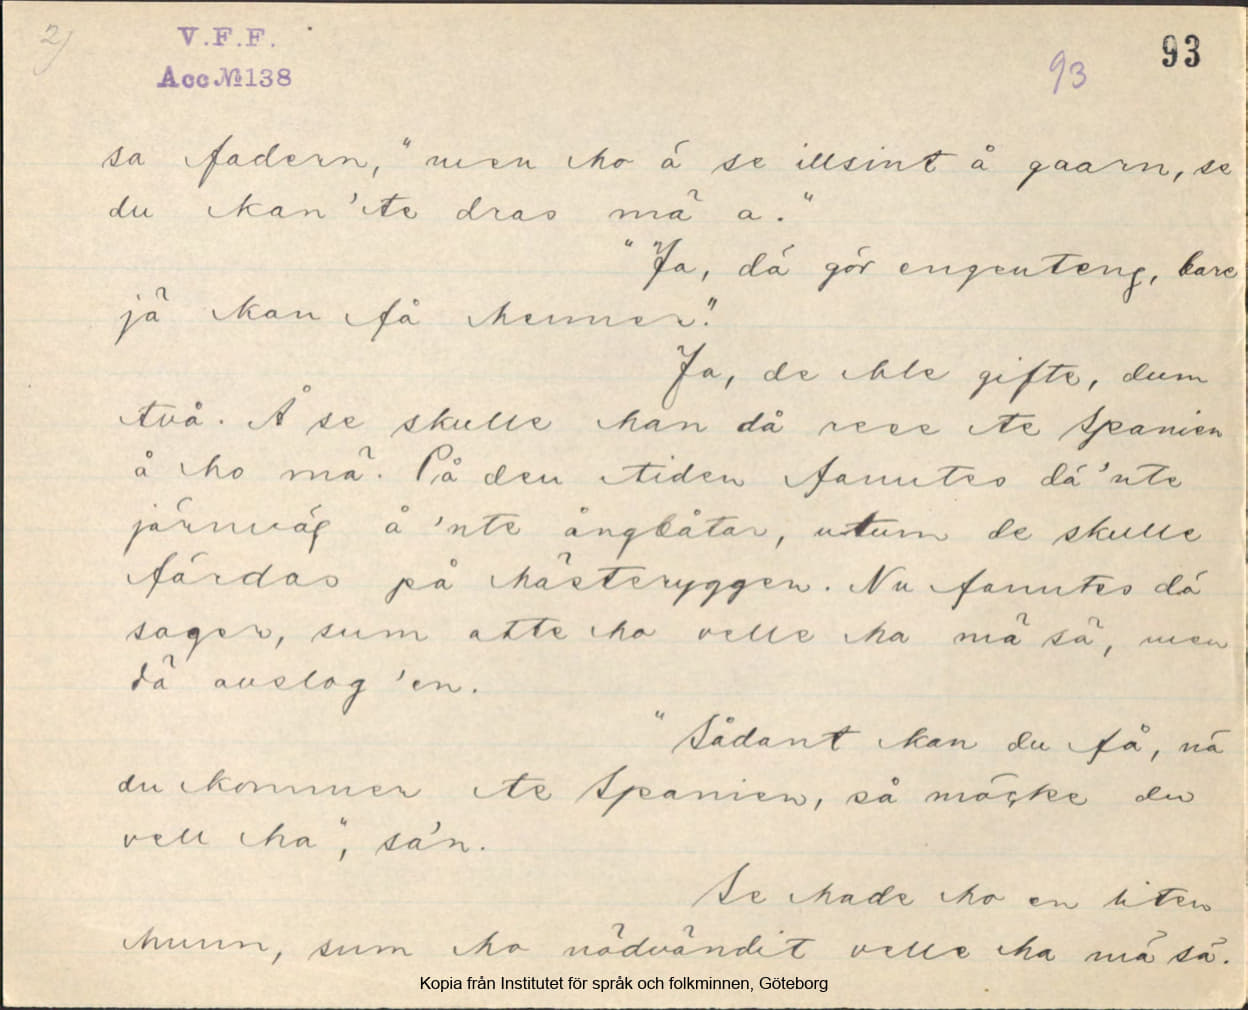 2)
V.F.F.
Acc № 138
93
93
sa fadern, "men ho ä se illsint å gaarn, se
du kan 'te dras mä a."
"Ja, dä gör engenteng, bare
jä kan få henner."
Ja, de ble gifte, dum
två. Å se skulle han då rese te Spanien
å ho mä. På den tiden fanntes dä 'nte
järnväg å 'nte ångbåtar, utum de skulle
färdas på hästeryggen. Nu fanntes dä
sager, sum atte ho velle ha mä sä, men
dä avslog 'en.
"Sådant kan du få, nä
du kommer te Spanien, så möcke du
vell ha", sa'n.
Se hade ho en liten
hunn, sum ho nödvändit velle ha mä sä.
Kopia från Institutet för språk och folkminnen, Göteborg